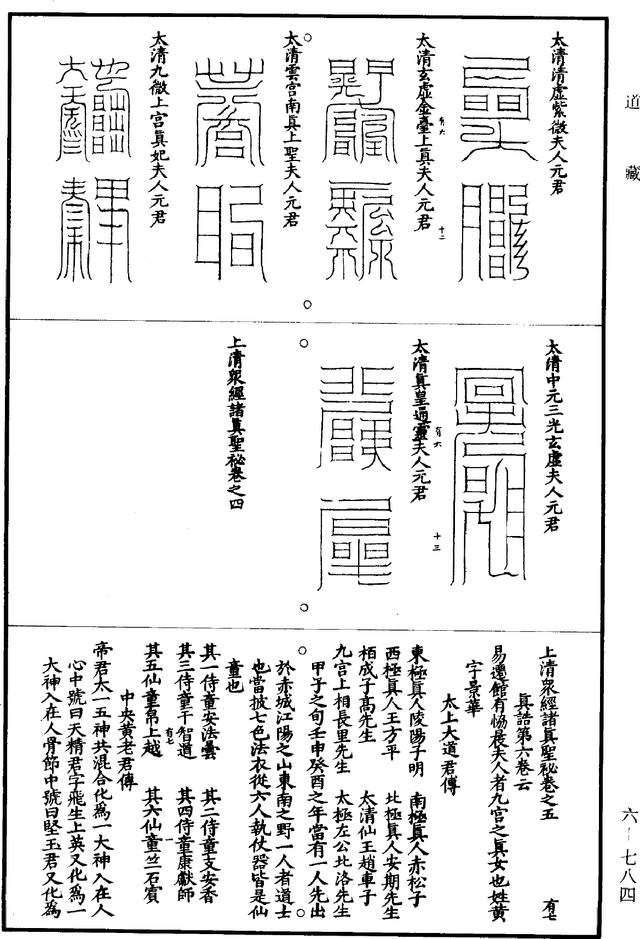 道藏
太清清虛紫微夫人元君
太清玄虛金臺上真夫人元君
有六
十二
太清雲宮南真上聖夫人元君
太清九微上宮真妃夫人元君
太清中元三光玄虛夫人元君
太清真皇通靈夫人元君
有六
十三
上清衆經諸真聖祕卷之四
上清衆經諸真聖祕卷之五
有七
真誥第六卷云
易遷館有惕晨夫人者九宮之真女也姓黃
字景華
太上大道君傳
東極真人陵陽子明　南極真人赤松子
西極真人王方平　北極真人安期先生
栢成子高先生　太清仙王趙車子
九宮上相長里先生　太極左公北洛先生
甲子之旬壬申癸酉之年當有一人先出
於赤城江陽之山東南之野一人者道士
也當披七色法衣從六人執仗器皆是仙
童也
其一侍童安法曇　其二侍童支安香
其三侍童干智道　其四侍童康獻師
其五仙童帛上越　其六仙童竺石賓
有七
一
中央黃老君傳
帝君太一五神共混合化為一大神入在人
心中號曰天精君字飛生上英又化為一
大神入在人骨節中號曰堅玉君又化為
六－七八四